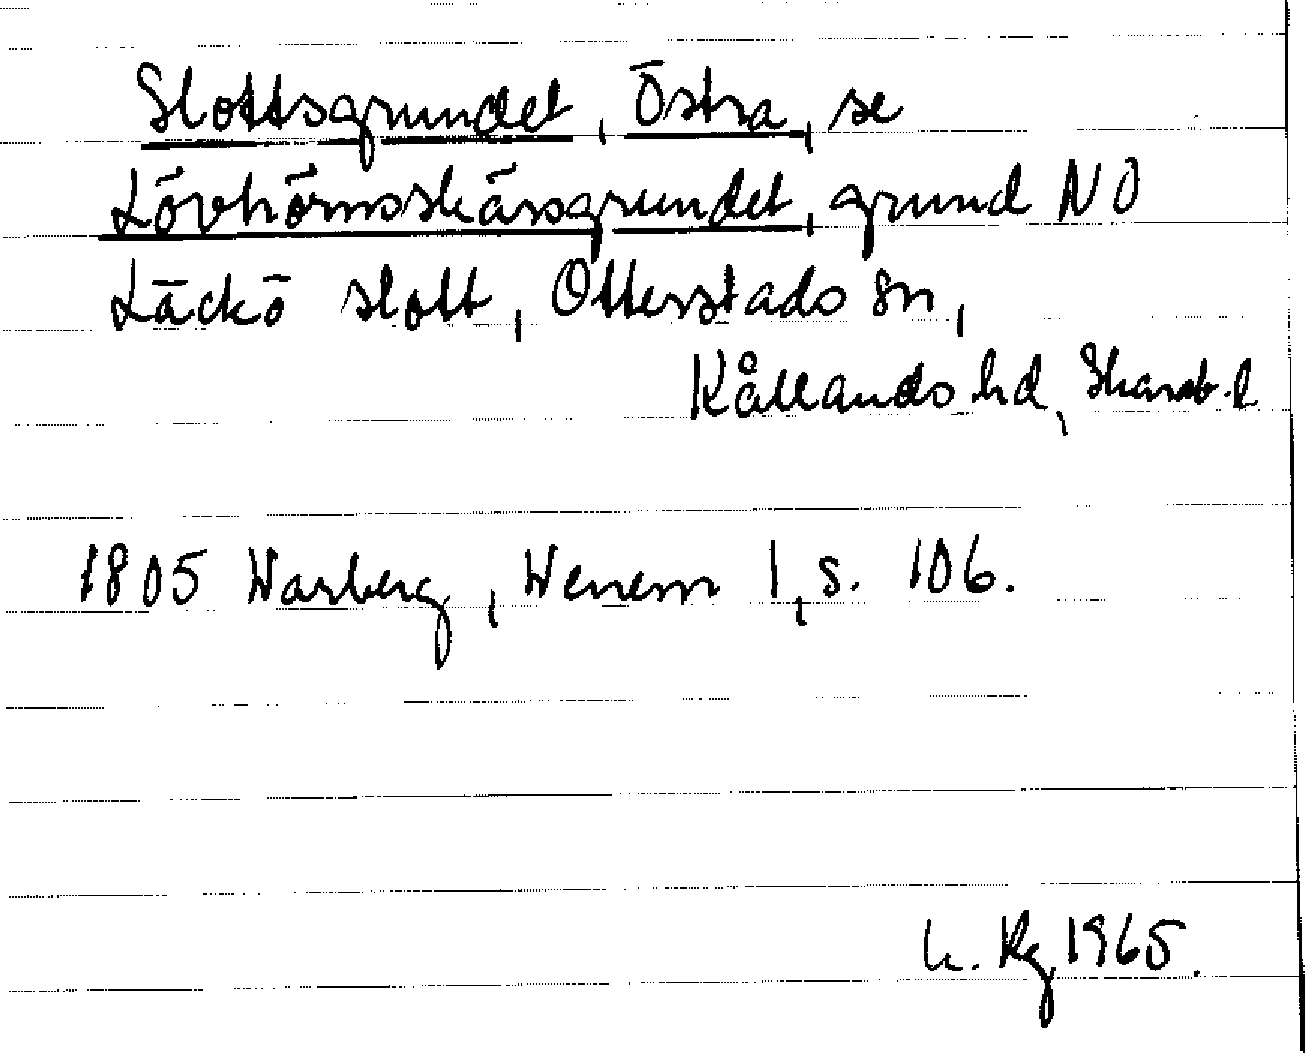 Slottsgrundet, Östra, se
Lövhörnsskärsgrundet, grund NO
Läckö slott, Otterstads sn,
Kållands hd, Skarab. l
1805 Warberg, Wenern 1, s. 106.
Rg 1965.